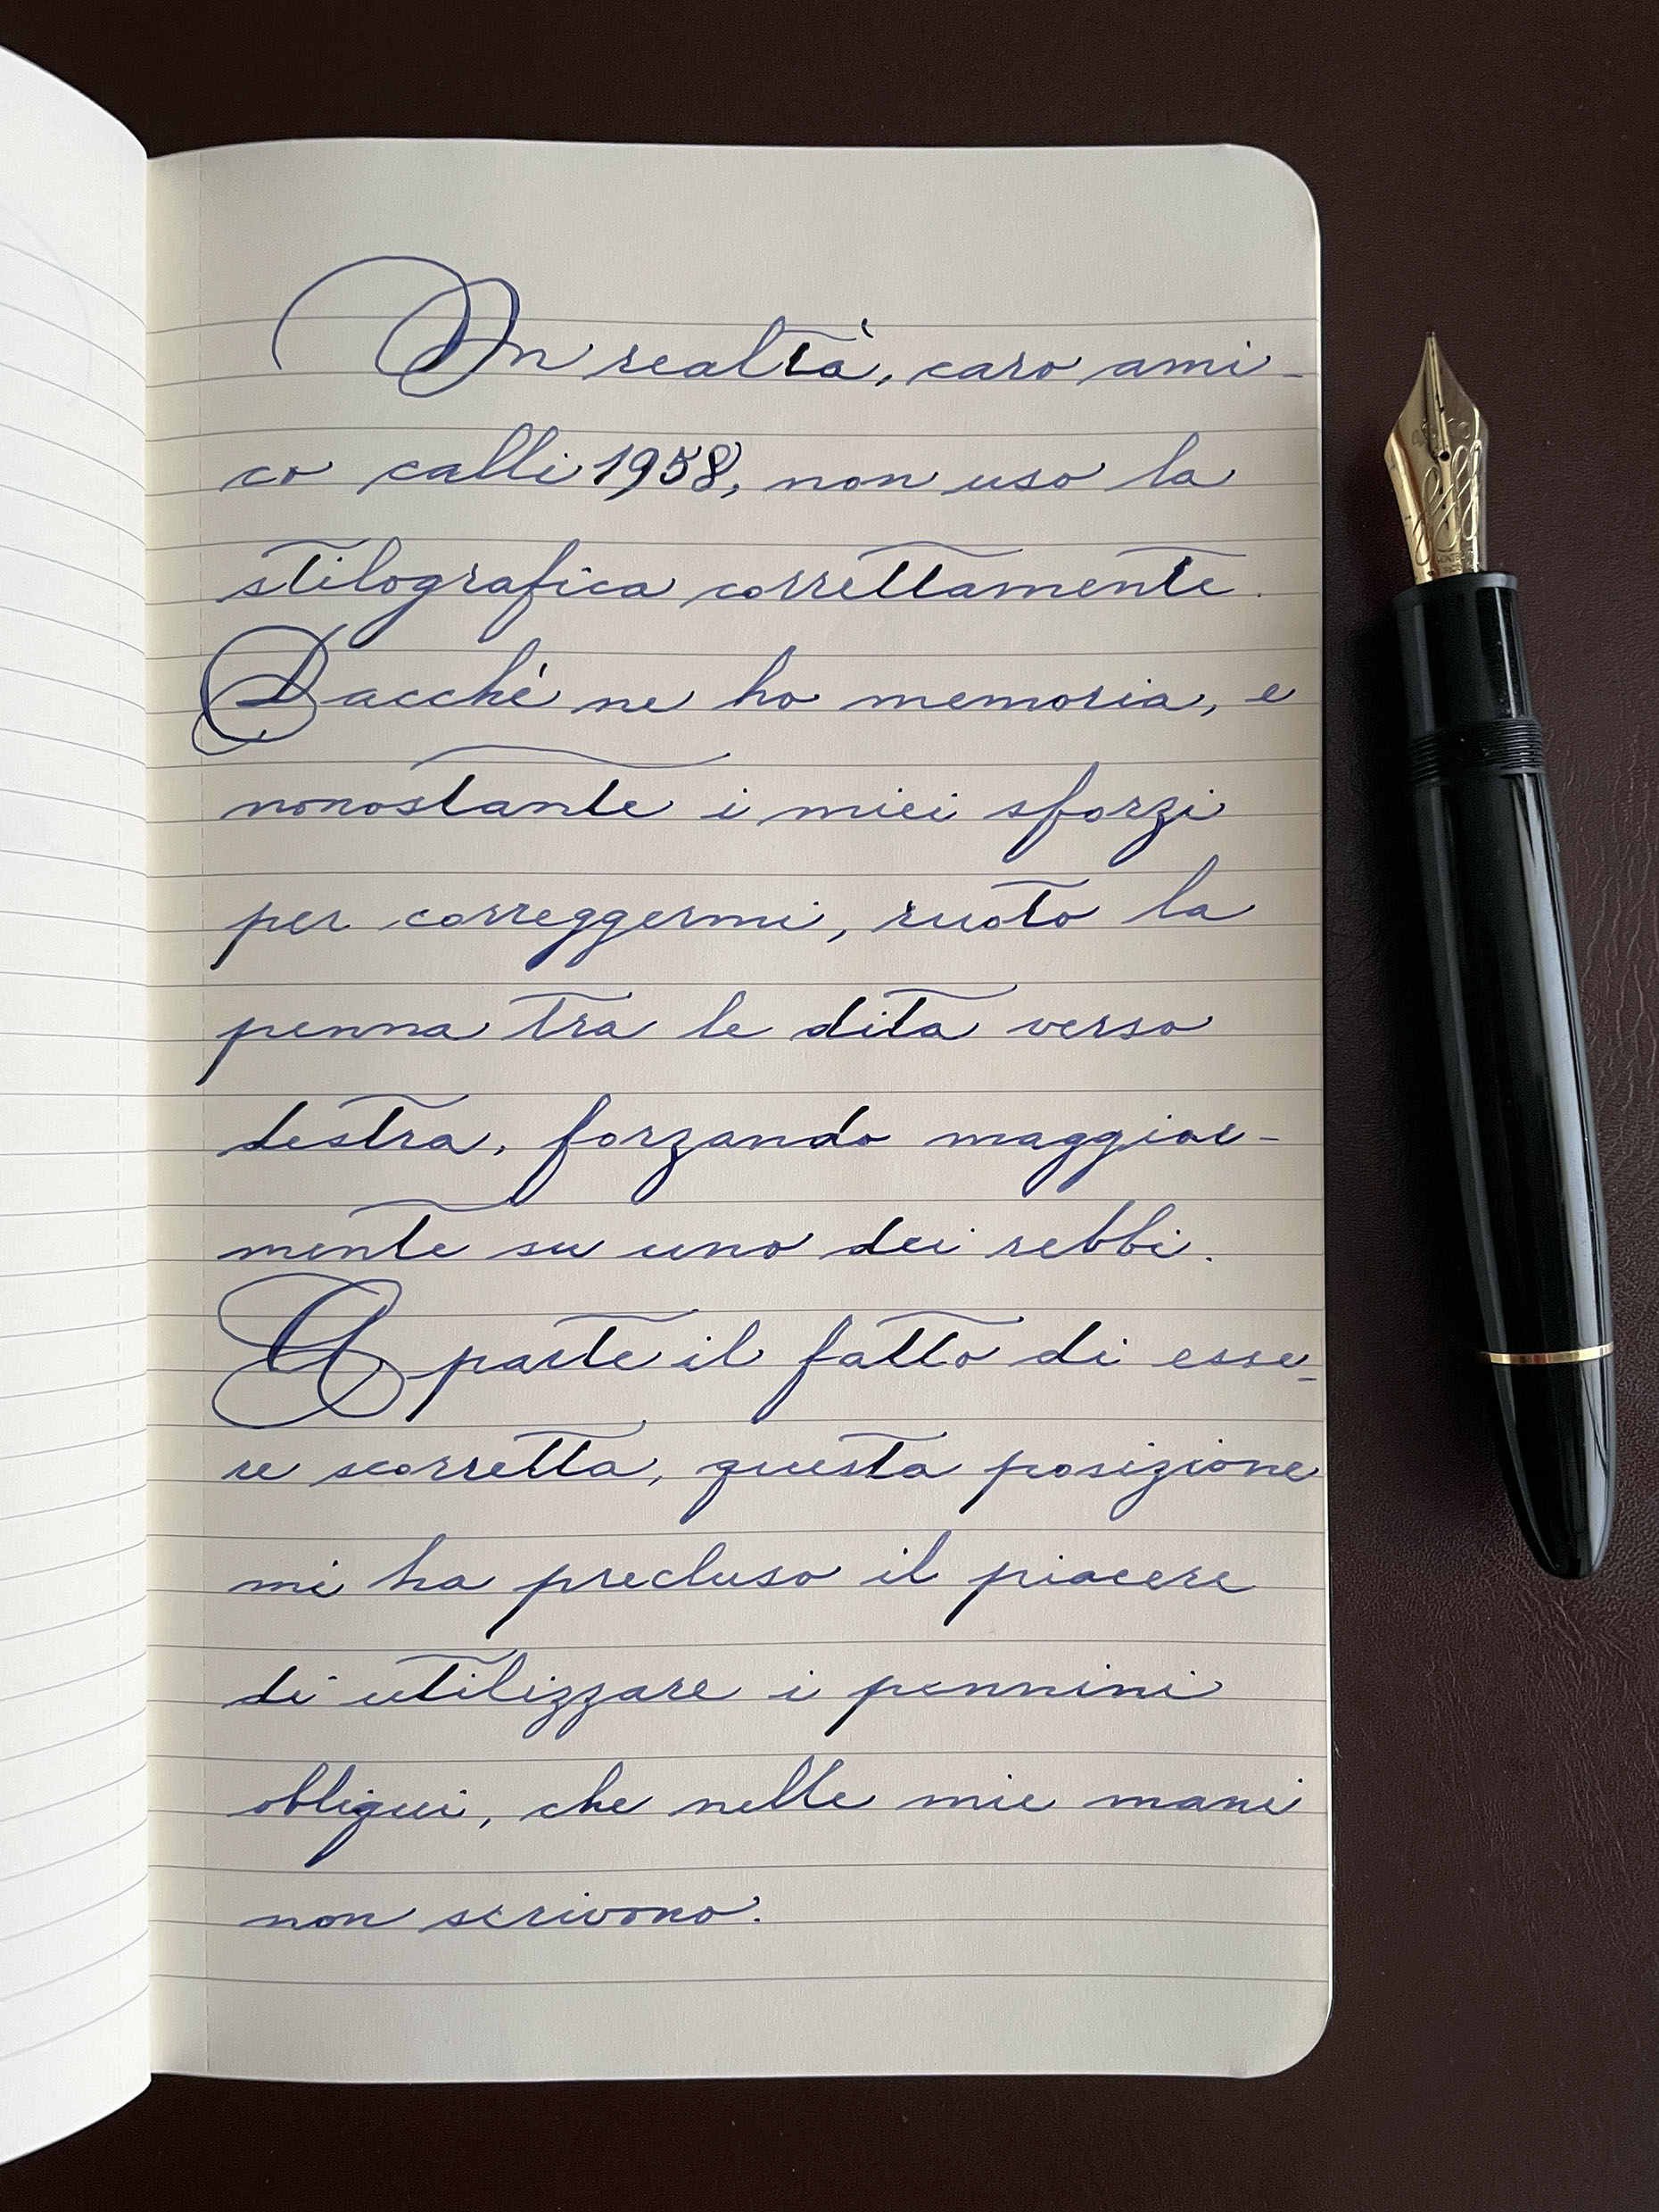 In realtà, caro ami-
co calli1958, non uso la
stilografica correttamente.
Dacché ne ho memoria, e
nonostante i miei sforzi
per correggermi, ruoto la
penna tra le dita verso
destra, forzando maggior-
mente su uno dei rebbi.
A parte il fatto di esse-
re scorretta, questa posizione
mi ha precluso il piacere
di utilizzare i pennini
obliqui, che nelle mie mani
non scrivono.